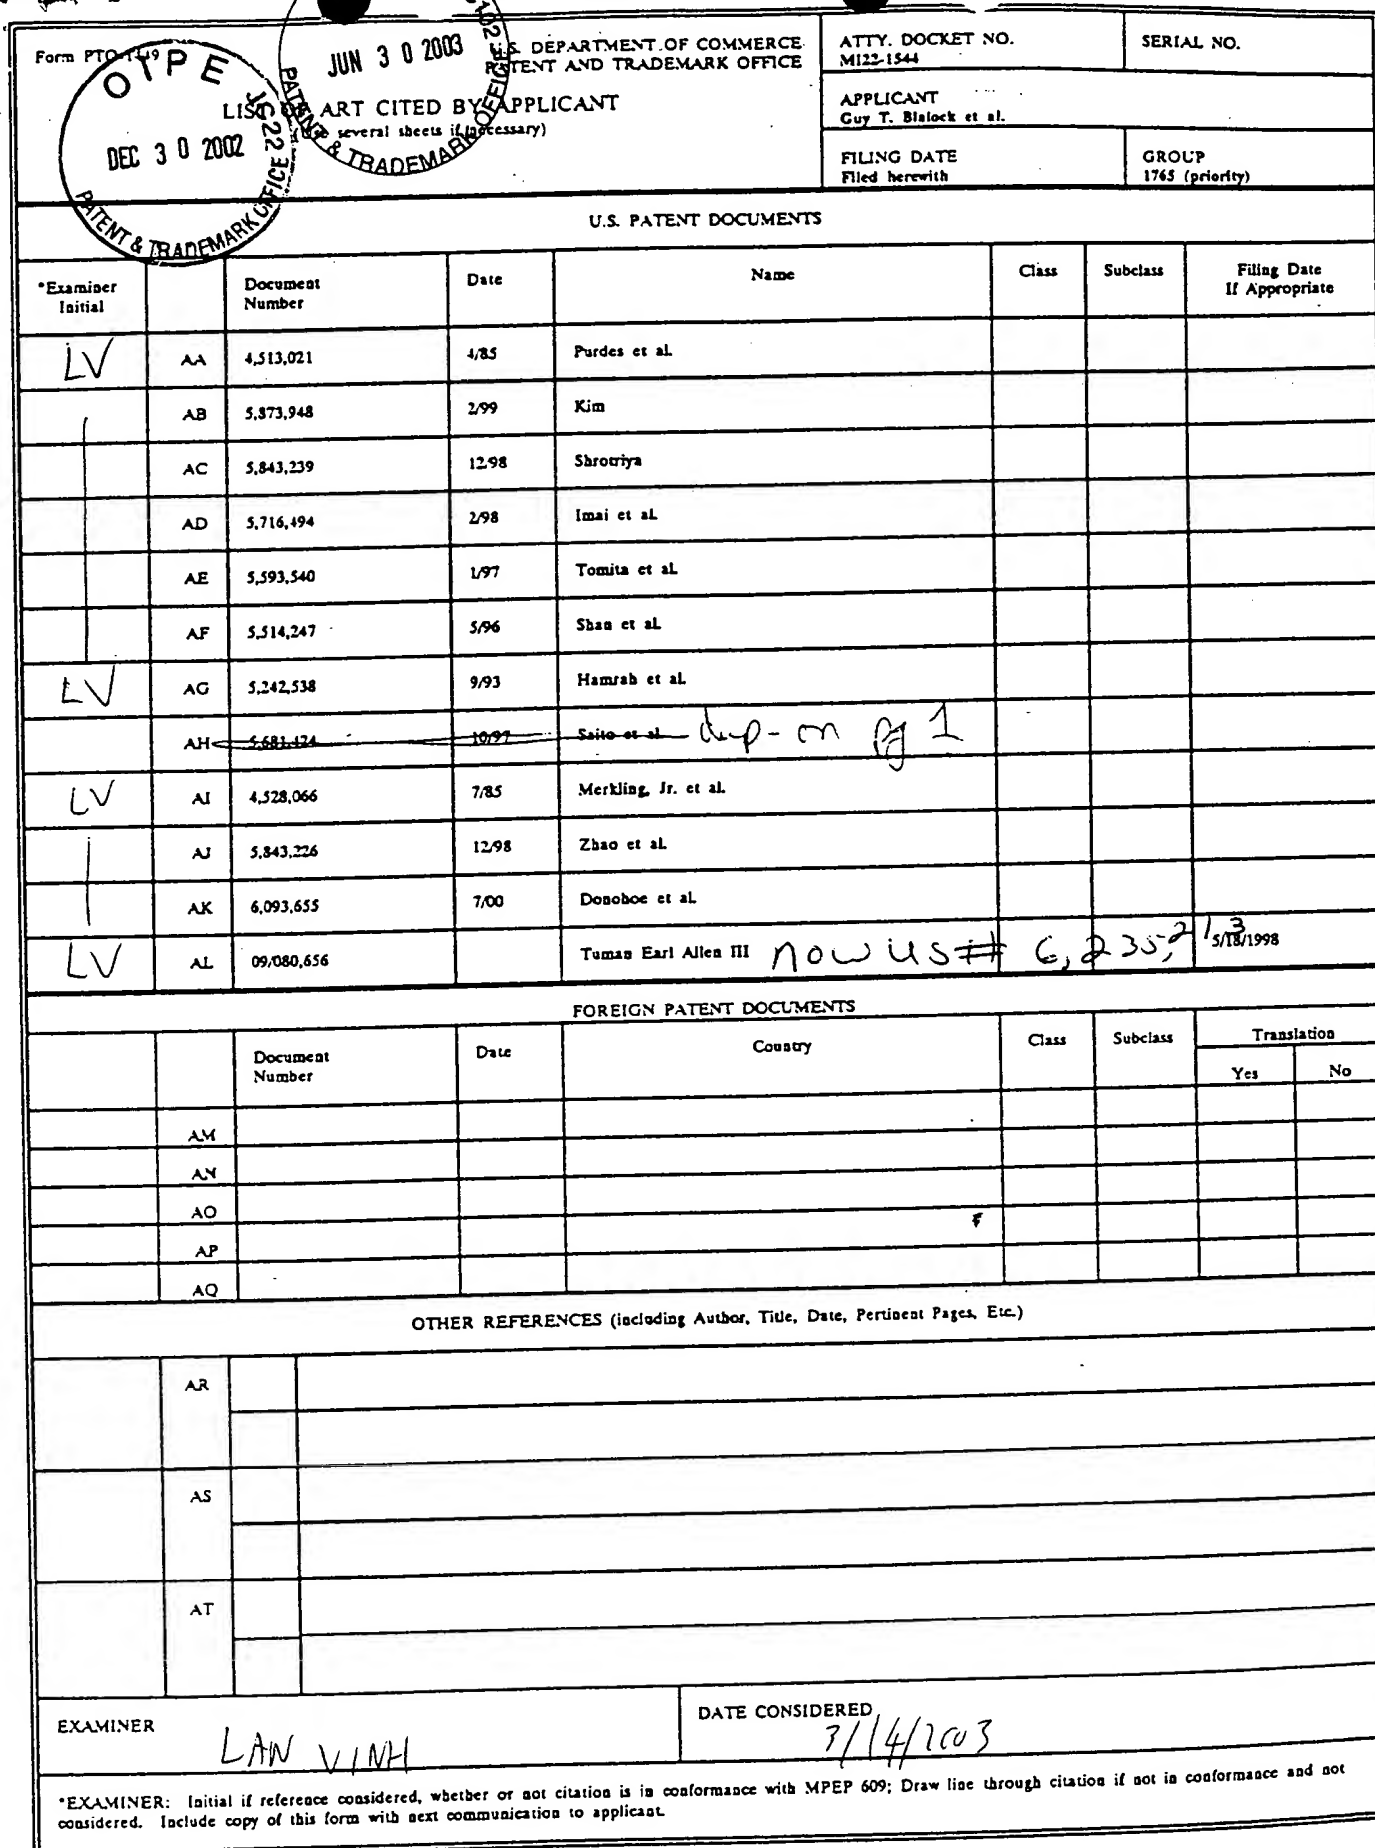 Form PTO-1449
U.S. DEPARTMENT OF COMMERCE
PATENT AND TRADEMARK OFFICE
LIST OF ART CITED BY APPLICANT
(Use several sheets if necessary)
OIPE JC22
DEC 30 2002
PATENT & TRADEMARK OFFICE
JUN 30 2003
PATENT & TRADEMARK OFFICE
ATTY. DOCKET NO.
MI22-1544
SERIAL NO.
APPLICANT
Guy T. Blalock et al.
FILING DATE
Filed herewith
GROUP
1765 (priority)
U.S. PATENT DOCUMENTS
*Examiner Initial Document Number Date Name Class Subclass Filing Date If Appropriate
LV AA 4,513,021 4/85 Purdes et al.
AB 5,873,948 2/99 Kim
AC 5,843,239 12/98 Shrotriya
AD 5,716,494 2/98 Imai et al.
AE 5,593,540 1/97 Tomita et al.
AF 5,514,247 5/96 Shan et al.
LV AG 5,242,538 9/93 Hamrah et al.
AH 5,681,424 10/97 Saito et al. dup- on pg 1
LV AI 4,528,066 7/85 Merkling, Jr. et al.
AJ 5,843,226 12/98 Zhao et al.
AK 6,093,655 7/00 Donohoe et al.
LV AL 09/080,656 Tuman Earl Allen III now US# 6,235,213 5/18/1998
FOREIGN PATENT DOCUMENTS
Document Number Date Country Class Subclass Translation
Yes No
AM
AN
AO
AP
AQ
OTHER REFERENCES (including Author, Title, Date, Pertinent Pages, Etc.)
AR
AS
AT
EXAMINER LAN VINH
DATE CONSIDERED 3/14/2003
*EXAMINER: Initial if reference considered, whether or not citation is in conformance with MPEP 609; Draw line through citation if not in conformance and not
considered. Include copy of this form with next communication to applicant.